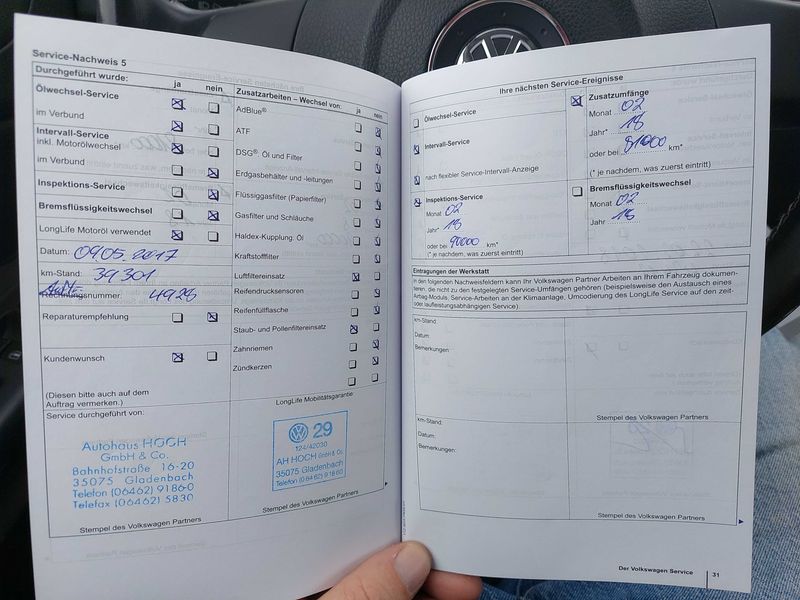 Service-Nachweis 5
Durchgeführt wurde:
ja
nein
Ölwechsel-Service
im Verbund
Intervall-Service
inkl. Motorölwechsel
im Verbund
Inspektions-Service
Bremsflüssigkeitswechsel
LongLife Motoröl verwendet
Datum: 09.05.2017
km-Stand: 39 301
Rechnungsnummer: 4928
Reparaturempfehlung
Kundenwunsch
(Diesen bitte auch auf dem
Auftrag vermerken.)
Service durchgeführt von:
Autohaus HOCH
GmbH & Co.
Bahnhofstraße 16-20
35075 Gladenbach
Telefon (06462) 9186-0
Telefax (06462) 5830
Stempel des Volkswagen Partners
Zusatzarbeiten – Wechsel von:
ja
nein
AdBlue®
ATF
DSG®: Öl und Filter
Erdgasbehälter und -leitungen
Flüssiggasfilter (Papierfilter)
Gasfilter und Schläuche
Haldex-Kupplung: Öl
Kraftstofffilter
Luftfiltereinsatz
Reifendrucksensoren
Reifenfüllflasche
Staub- und Pollenfiltereinsatz
Zahnriemen
Zündkerzen
LongLife Mobilitätsgarantie
29
124/42030
AH HOCH GmbH & Co.
35075 Gladenbach
Telefon (06462) 91860
Stempel des Volkswagen Partners
Ihre nächsten Service-Ereignisse
Ölwechsel-Service
Intervall-Service
nach flexibler Service-Intervall-Anzeige
Inspektions-Service
Monat 02
Jahr* 18
oder bei 90000 km*
(* je nachdem, was zuerst eintritt)
Zusatzumfänge
Monat 02
Jahr* 18
oder bei 81000 km*
(* je nachdem, was zuerst eintritt)
Bremsflüssigkeitswechsel
Monat 02
Jahr 18
Eintragungen der Werkstatt
In den folgenden Nachweisfeldern kann Ihr Volkswagen Partner Arbeiten an Ihrem Fahrzeug dokumen-
tieren, die nicht zu den festgelegten Service-Umfängen gehören (beispielsweise den Austausch eines
Airbag-Moduls, Service-Arbeiten an der Klimaanlage, Umcodierung des LongLife Service auf den zeit-
oder laufleistungsabhängigen Service).
km-Stand:
Datum:
Bemerkungen:
Stempel des Volkswagen Partners
km-Stand:
Datum:
Bemerkungen:
Stempel des Volkswagen Partners
Der Volkswagen Service
31